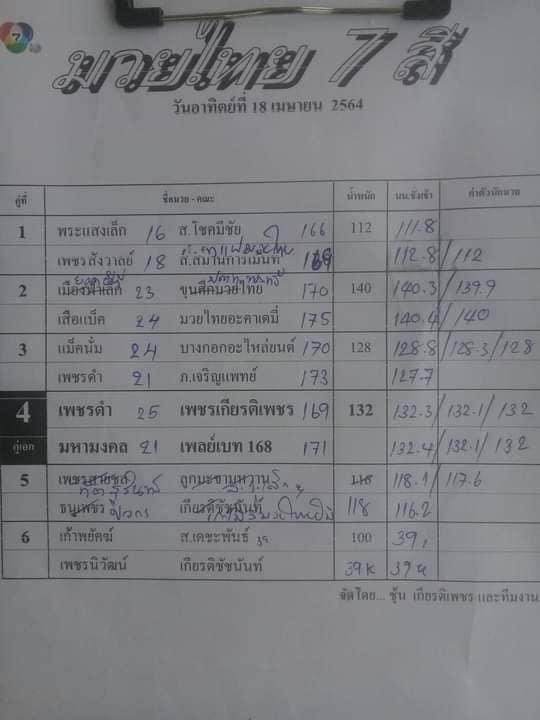 7
มวยไทย 7 สี
วันอาทิตย์ที่ 18 เมษายน 2564
คู่ที่ ชื่อมวย - คณะ น้ำหนัก นน.ชั่งเช้า ค่าตัวนักมวย
1 พระแสงเล็ก 16 ส.โชคมีชัย 166 112 111.8
เพชรสังวาลย์ 18 ส.สมานการเม้นท์ 112.8 / 112
2 เมืองฟ้าเล็ก 23 ขุนศึกมวยไทย 170 140 140.3 / 139.9
เสือแบ็ค 24 มวยไทยอะคาเดมี่ 175 140.4 / 140
3 แม็คนั่ม 24 บางกอกอะไหล่ยนต์ 170 128 128.8 / 128.3 / 128
เพชรดำ 21 ภ.เจริญแพทย์ 173 127.7
4 เพชรดำ 25 เพชรเกียรติเพชร 169 132 132.3 / 132.1 / 132
คู่เอก มหามงคล 21 เพลย์เบท 168 171 132.4 / 132.1 / 132
5 ลูกมะขามหวาน 118 118.1 / 117.6
ธนูเพชร เกียรติชัชนันท์ 118 116.2
6 เก้าพยัคฆ์ ส.เดชะพันธ์ 100 39
เพชรนิวัฒน์ เกียรติชัชนันท์ 39 K
จัดโดย... ชุ้น เกียรติเพชร และทีมงาน